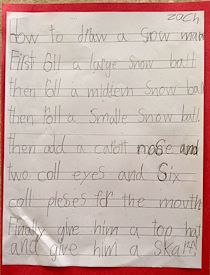 zach
How to draw a snow man
First Roll a large snow ball
then Roll a middem snow ball
then Roll a Smalle snow ball.
then add a carott nose and
two coll eyes and Six
coll pleses for the mouth
Finally give him a top hat
and give him a skarf!